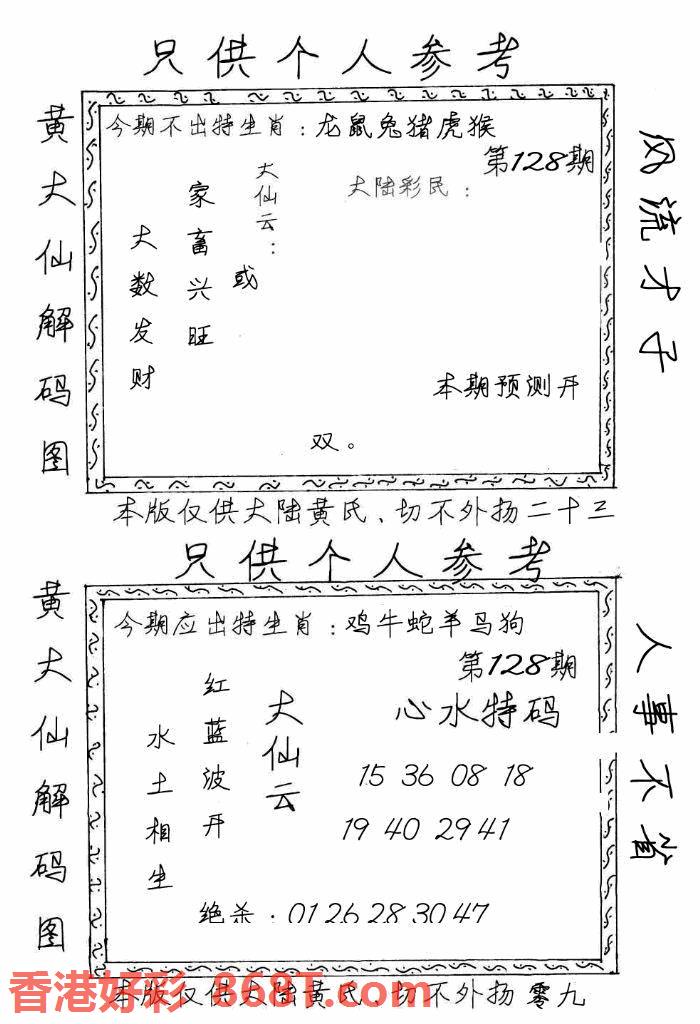 只供个人参考
黄大仙解码图
今期不出特生肖：龙鼠兔猪虎猴
第128期
大仙云：
或
家畜兴旺
大数发财
大陆彩民：
本期预测开
双。
风流才子
本版仅供大陆黄氏、切不外扬二十三
只供个人参考
黄大仙解码图
今期应出特生肖：鸡牛蛇羊马狗
第128期
大仙云
红蓝波开
水土相生
心水特码
15 36 08 18
19 40 29 41
绝杀·01 26 28 30 47
人事不省
本版仅供大陆黄氏、切不外扬零九
香港好彩 868T.com